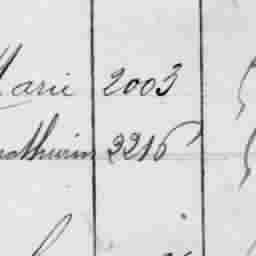 Marie 2003
Mathurin 2216